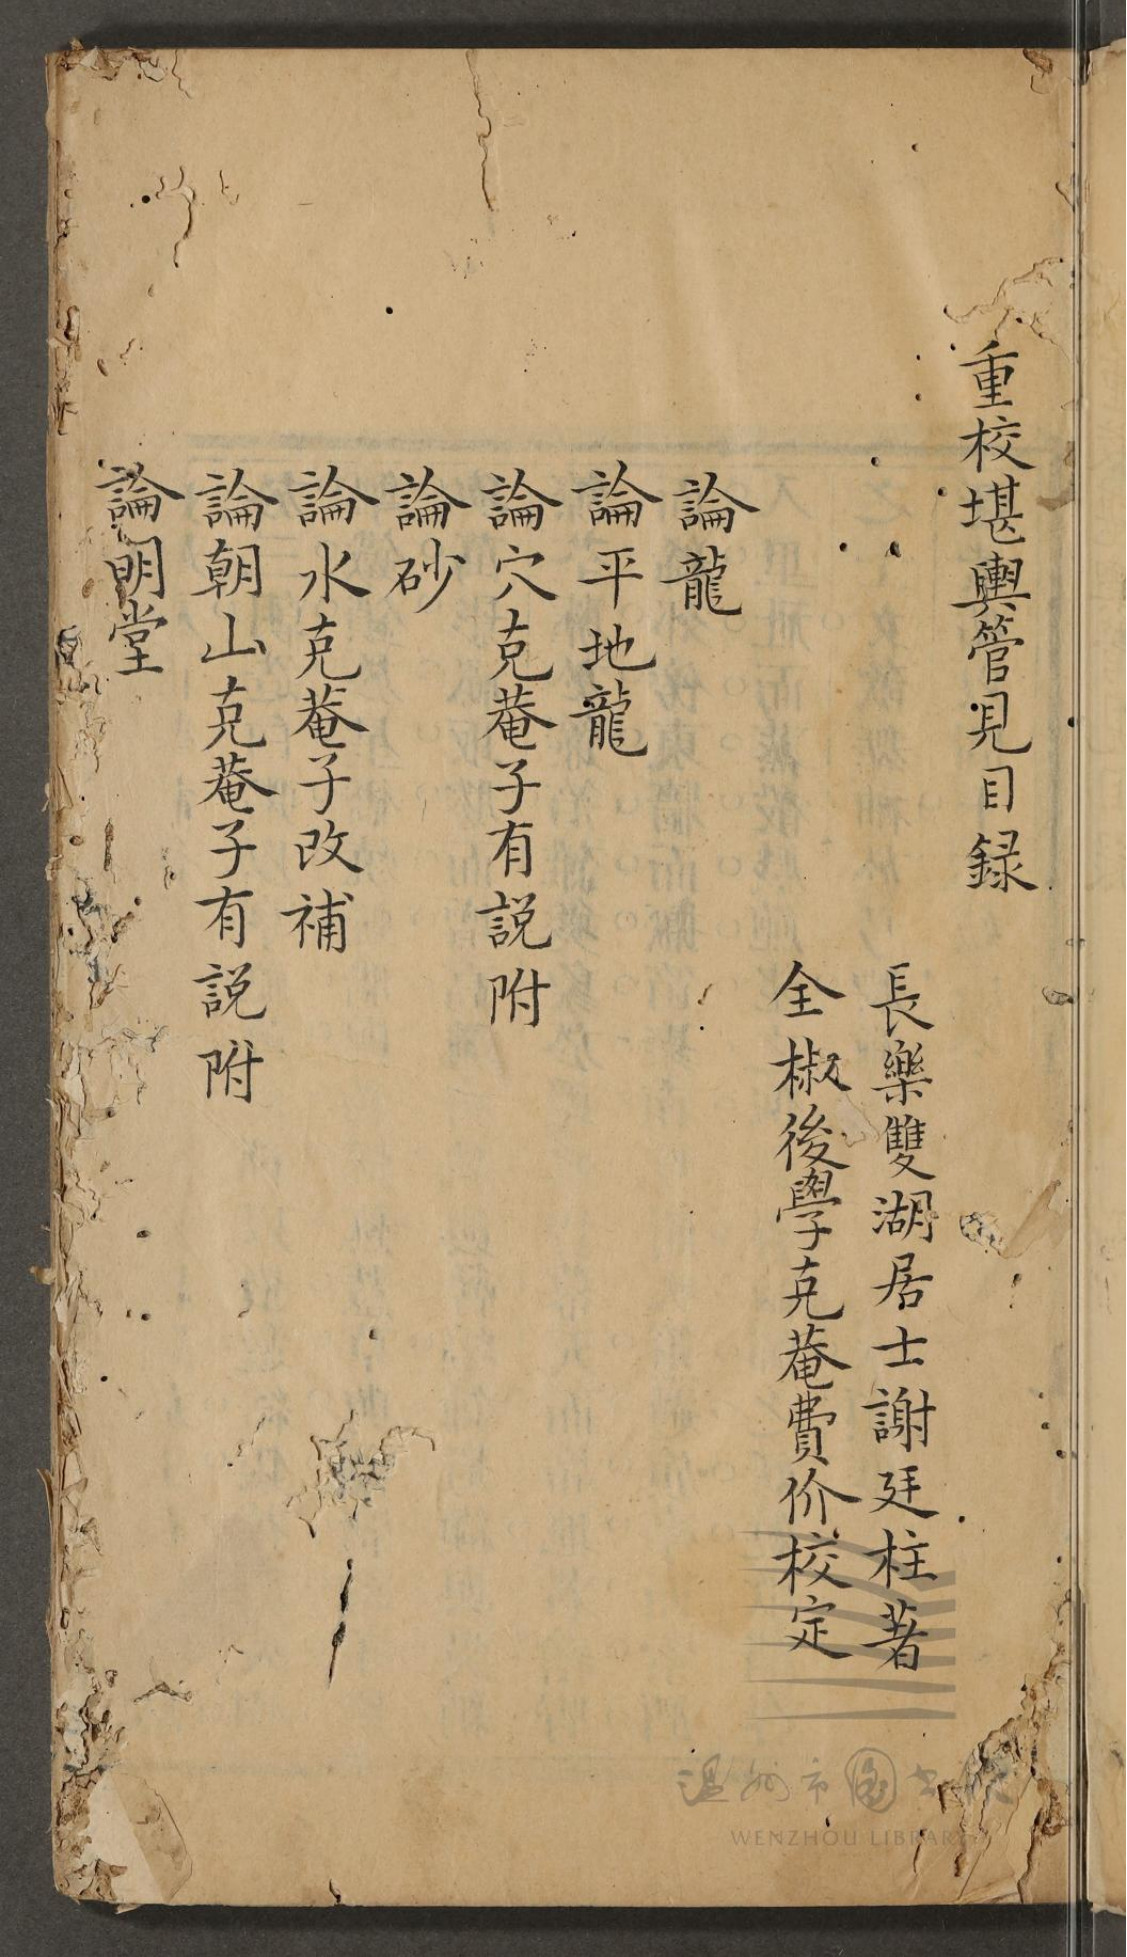 重校堪輿管見目録
長樂雙湖居士謝廷柱著
全椒後學克菴費价校定
論龍
論平地龍
論穴克菴子有説附
論砂
論水克菴子改補
論朝山克菴子有説附
論明堂
温州市圖書館
WENZHOU LIBRARY